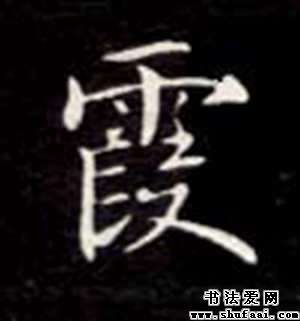 霞
书法爱网
www.shufaai.com